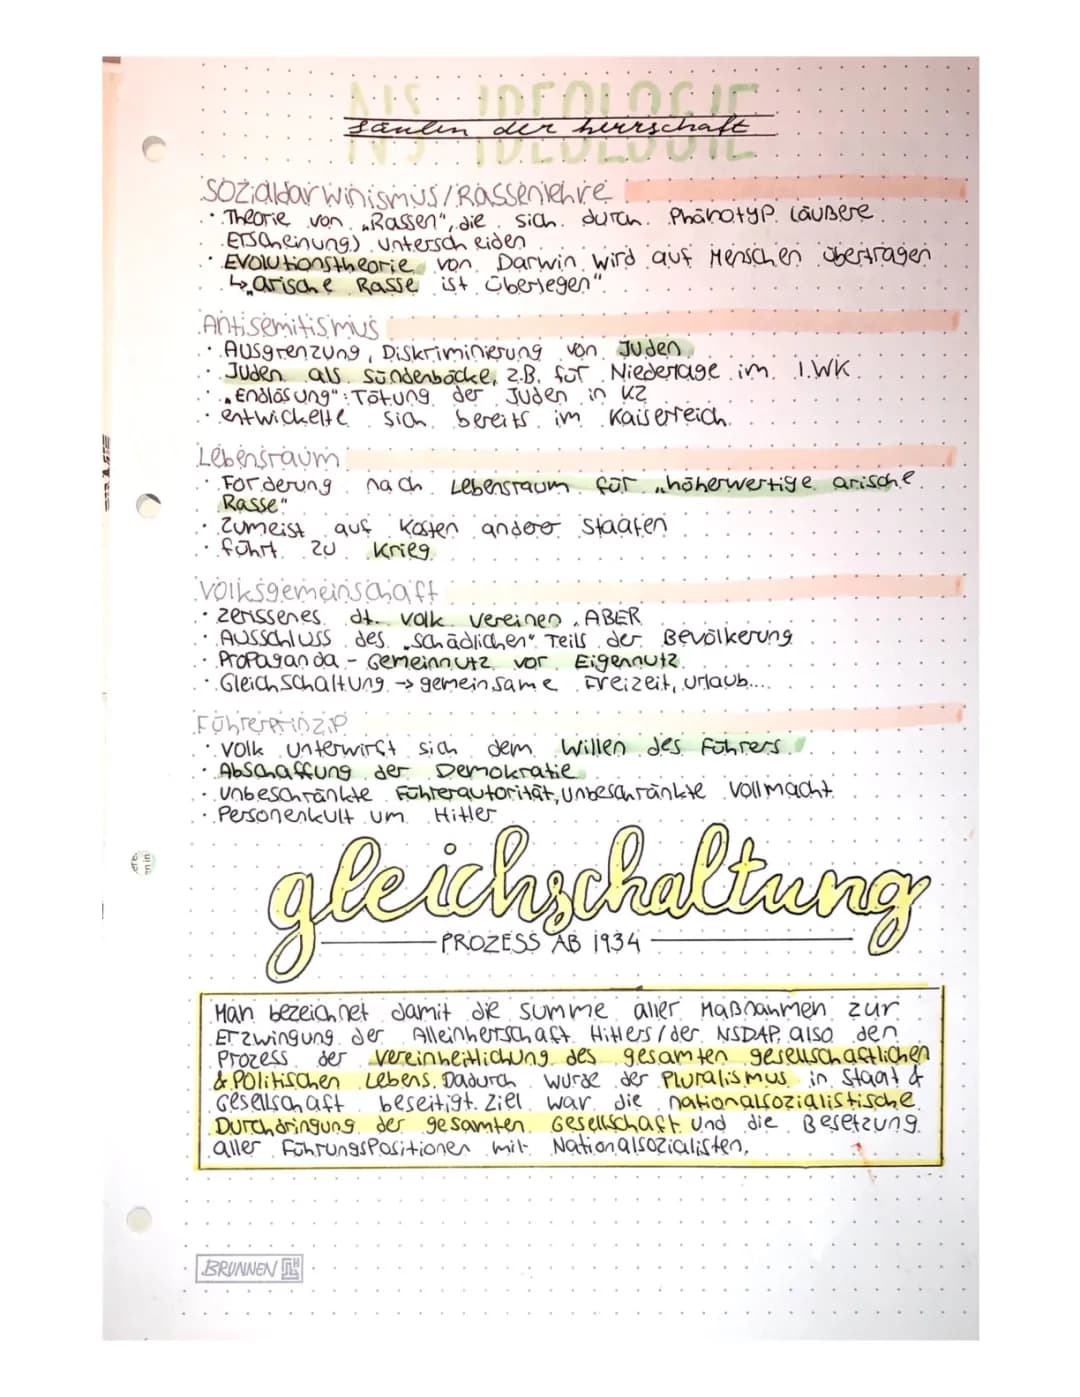 NS IDEOLOGIE
säulen der herrschaft
Sozialdarwinismus/Rassenlehre
· Theorie von „Rassen", die sich durch Phänotyp (äußere
Erscheinung) unterscheiden
· Evolutionstheorie von Darwin wird auf Menschen übertragen
↳ „arische Rasse ist überlegen"
Antisemitismus
· Ausgrenzung, Diskriminierung von Juden
· Juden als Sündenböcke, z.B. für Niederlage im 1.WK
· „Endlösung": Tötung der Juden in KZ
· entwickelte sich bereits im Kaiserreich
Lebensraum
· Forderung nach Lebensraum für „höherwertige arische
Rasse"
· Zumeist auf Kosten anderer Staaten
· führt zu Krieg
Volksgemeinschaft
· zerissenes dt. Volk vereinen ABER
· Ausschluss des „schädlichen" Teils der Bevölkerung
· Propaganda - Gemeinnutz vor Eigennutz
· Gleichschaltung → gemeinsame Freizeit, Urlaub...
Führerprinzip
· Volk unterwirft sich dem Willen des Führers
· Abschaffung der Demokratie
· unbeschränkte Führerautorität, unbeschränkte Vollmacht
· Personenkult um Hitler
gleichschaltung
PROZESS AB 1934
Man bezeichnet damit die Summe aller Maßnahmen zur
Erzwingung der Alleinherrschaft Hitlers/der NSDAP, also den
Prozess der Vereinheitlichung des gesamten gesellschaftlichen
& Politischen Lebens. Dadurch wurde der Pluralismus in Staat &
Gesellschaft beseitigt. Ziel war die nationalsozialistische
Durchdringung der gesamten Gesellschaft und die Besetzung
aller Führungspositionen mit Nationalsozialisten.
BRUNNEN